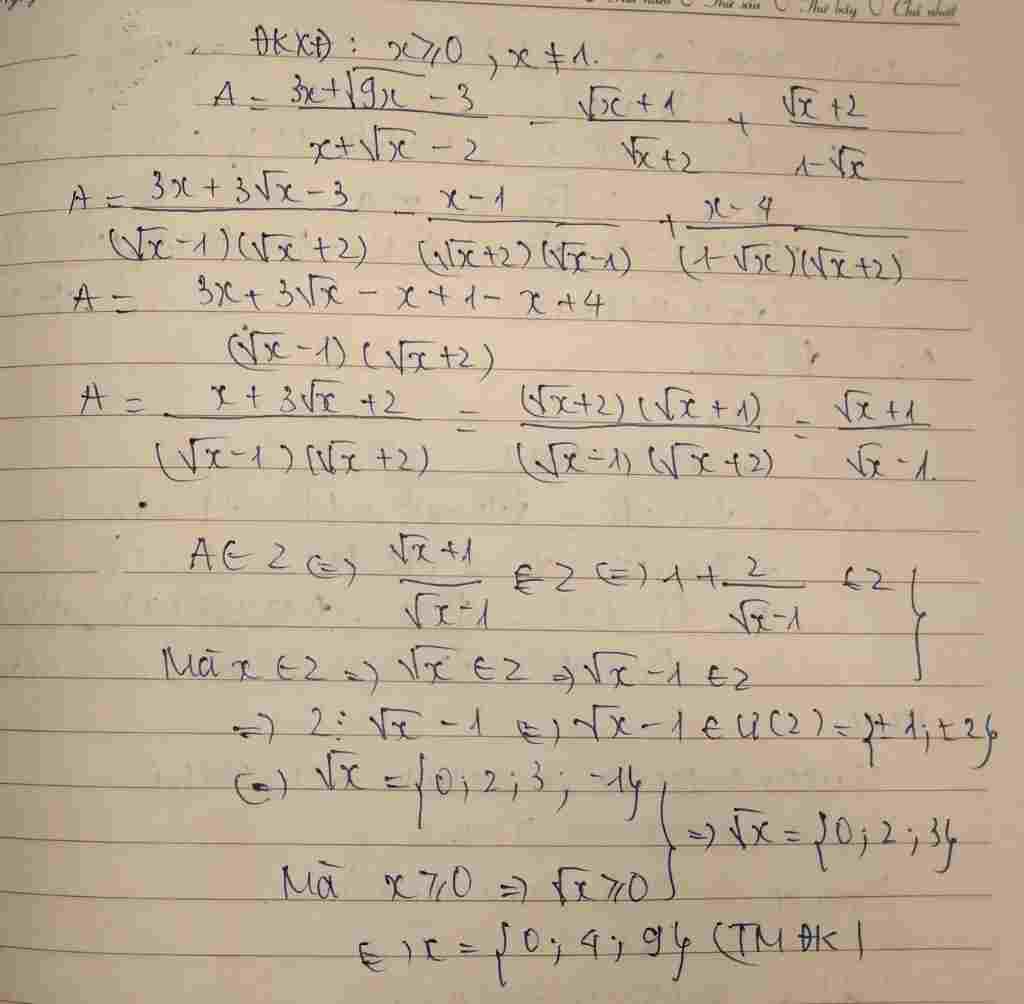 Thứ sáu Thứ bảy Chủ nhật
ĐKXĐ : x ⩾ 0 , x ≠ 1.
A = (3x + √9x - 3)/(x + √x - 2) - (√x + 1)/(√x + 2) + (√x + 2)/(1 - √x)
A = (3x + 3√x - 3)/((√x - 1)(√x + 2)) - (x - 1)/((√x + 2)(√x - 1)) + (x - 4)/((1 - √x)(√x + 2))
A = (3x + 3√x - x + 1 - x + 4)/((√x - 1)(√x + 2))
A = (x + 3√x + 2)/((√x - 1)(√x + 2)) = ((√x + 2)(√x + 1))/((√x - 1)(√x + 2)) = (√x + 1)/(√x - 1).
A ∈ Z (=) (√x + 1)/(√x - 1) ∈ Z (=) 1 + 2/(√x - 1) ∈ Z }
Mà x ∈ Z =) √x ∈ Z =) √x - 1 ∈ Z
=) 2 ⋮ √x - 1 (=) √x - 1 ∈ Ư(2) = {±1; ±2}
(=) √x = {0; 2; 3; -1} } =) √x = {0; 2; 3}
Mà x ⩾ 0 =) √x ⩾ 0
(=) x = {0; 4; 9} (TMĐK)